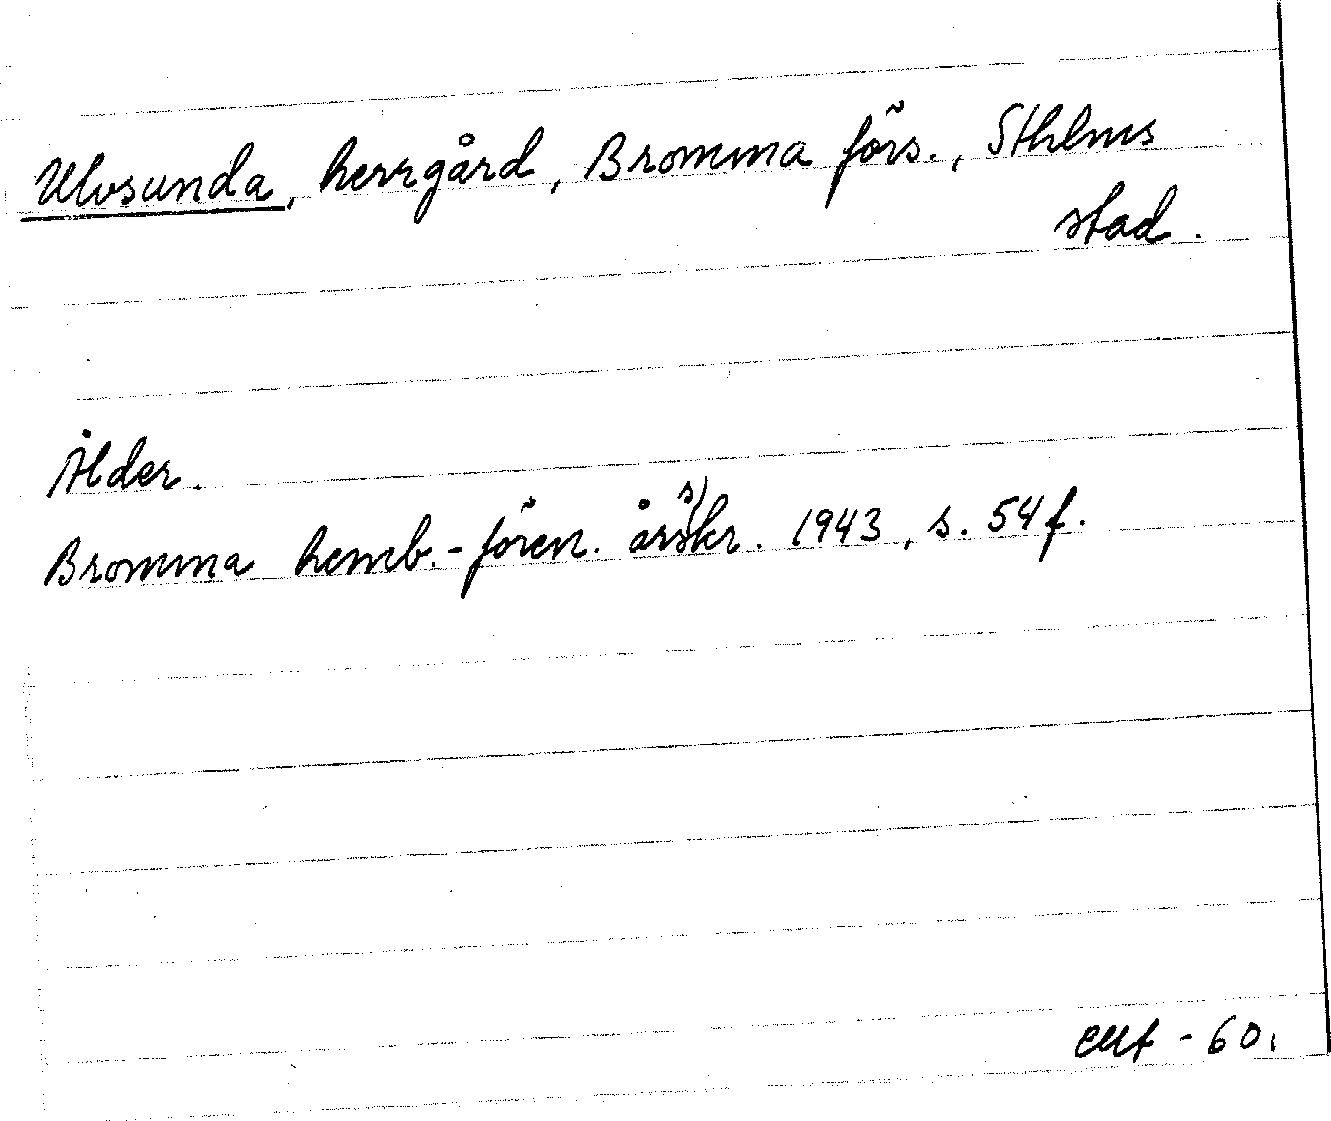 Ulvsunda, herrgård, Bromma förs., Sthlms
stad.
Ålder.
Bromma hemb.-fören. årsskr. 1943, s. 54 f.
-60.